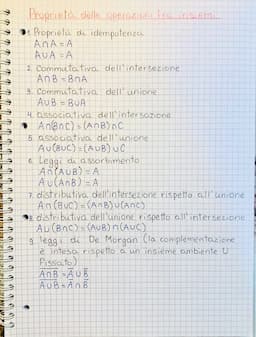 Proprietà delle operazioni tra insiemi
1. Proprietà di idempotenza
A∩A = A
A∪A = A
2. Commutativa dell'intersezione
A∩B = B∩A
3. Commutativa dell'unione
A∪B = B∪A
4. associativa dell'intersezione
A∩(B∩C) = (A∩B)∩C
5. associativa dell'unione
A∪(B∪C) = (A∪B)∪C
6. Leggi di assorbimento
A∩(A∪B) = A
A∪(A∩B) = A
7. distributiva dell'intersezione rispetto all'unione
A∩(B∪C) = (A∩B)∪(A∩C)
8. distributiva dell'unione rispetto all'intersezione
A∪(B∩C) = (A∪B)∩(A∪C)
9. leggi di De Morgan (la complementazione
è intesa rispetto a un insieme ambiente U
fissato)
A̅∩̅B̅ = A̅∪B̅
A̅∪̅B̅ = A̅∩B̅